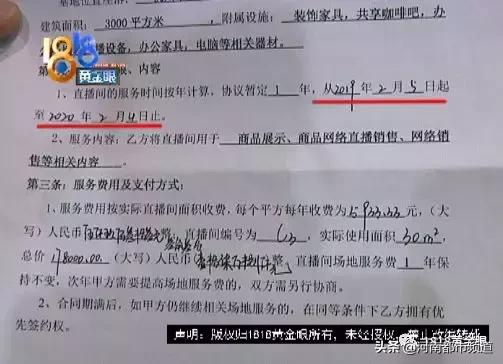 基地位置座落:
建筑面积: 3000平方米 , 附属设施: 装饰家具,共享咖啡吧,办
直播设备,办公家具,电脑等相关器材。
1818
黄金眼
内容
1、直播间的服务时间按年计算,协议暂定 1 年,从2019 年 2 月 5 日起
至 2020 年 2 月 4 日止。
2、服务内容:乙方将直播间用于 商品展示、商品网络直播销售、网络销
售等相关内容。
第三条:服务费用及支付方式:
1、服务费用按实际直播间面积收费,每个平方每年收费为 元,(大
写)人民币 整;直播间编号为 C3 ,实际使用面积 30m²,
总价 48000.00 (大写)人民币 直播间场地服务费 1 年保
持不变,次年甲方需要提高场地服务费的,双方需另行协商。
2、合同期满后,如甲方仍继续相关场地服务的,在同等条件下乙方拥有优
先签约权。
声明:版权归1818黄金眼所有,未经授权,禁止改编转载
1818黄金眼
头条@河南都市频道